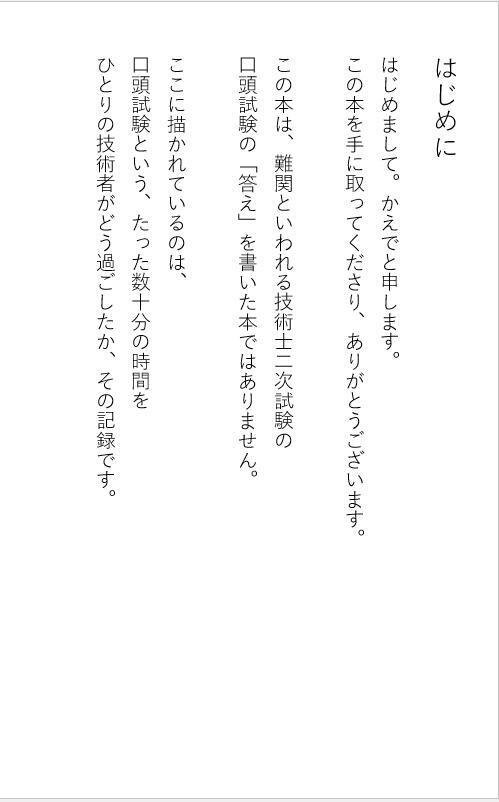 はじめに
はじめまして。かえでと申します。
この本を手に取ってくださり、ありがとうございます。
この本は、難関といわれる技術士二次試験の
口頭試験の「答え」を書いた本ではありません。
ここに描かれているのは、
口頭試験という、たった数十分の時間を
ひとりの技術者がどう過ごしたか、その記録です。